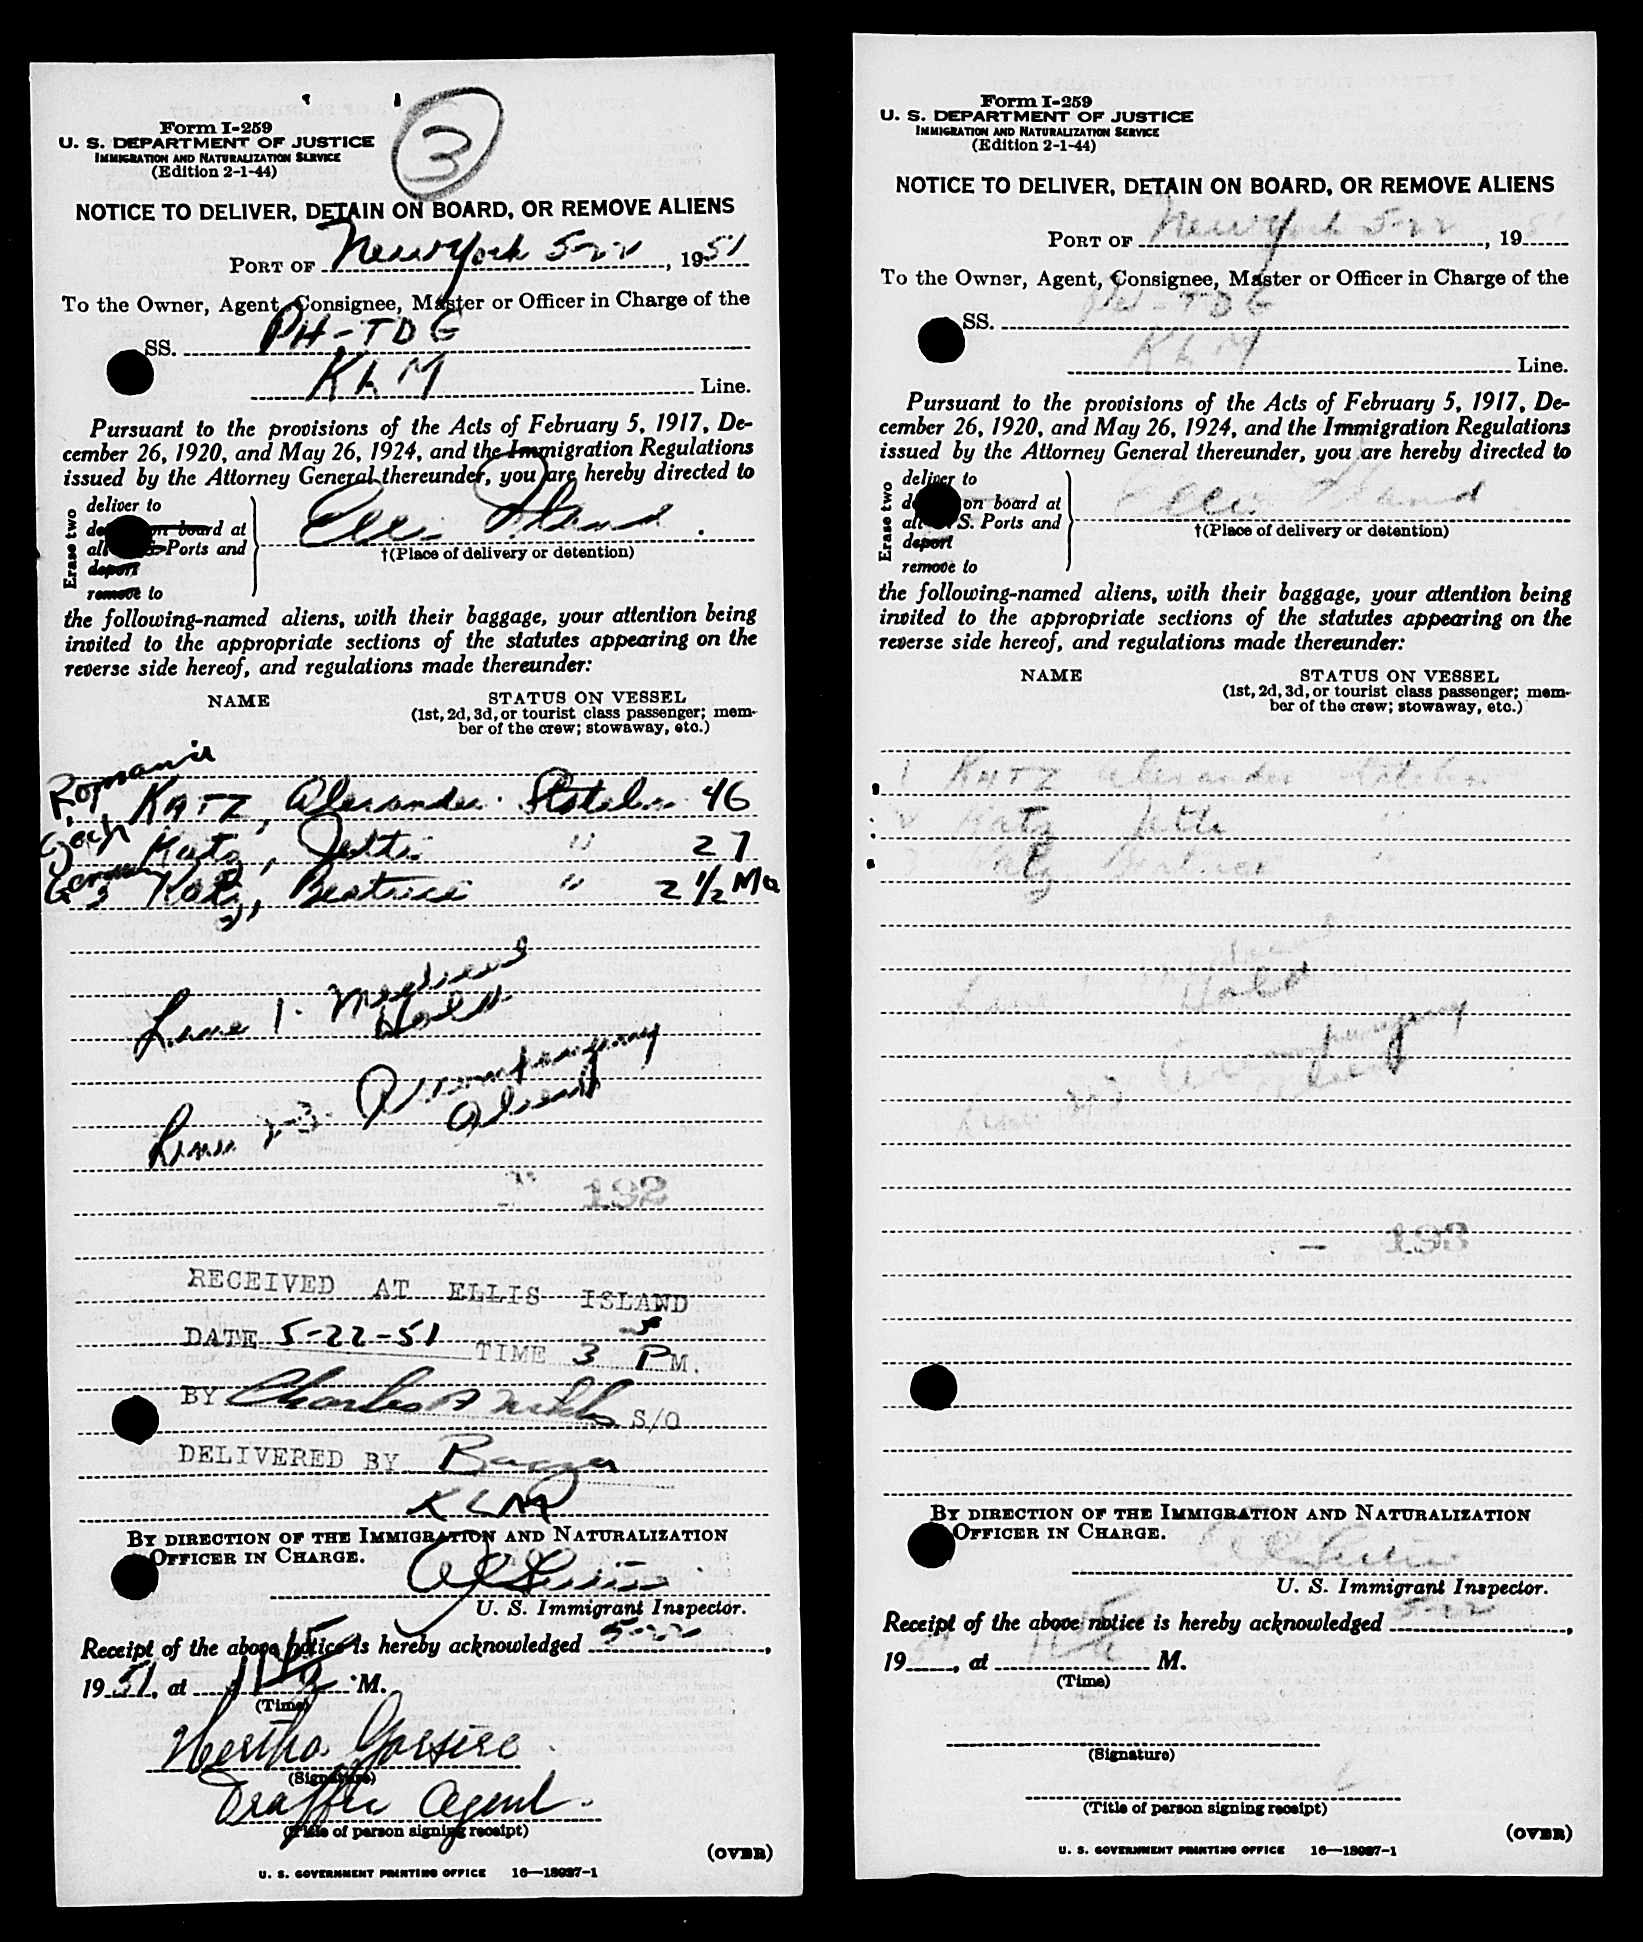 3
Form I-259
U. S. DEPARTMENT OF JUSTICE
IMMIGRATION AND NATURALIZATION SERVICE
(Edition 2-1-44)
NOTICE TO DELIVER, DETAIN ON BOARD, OR REMOVE ALIENS
PORT OF New York 5-22, 1951
To the Owner, Agent, Consignee, Master or Officer in Charge of the
SS. PH-TDG
KLM Line.
Pursuant to the provisions of the Acts of February 5, 1917, De-
cember 26, 1920, and May 26, 1924, and the Immigration Regulations
issued by the Attorney General thereunder, you are hereby directed to
Erase two
deliver to
on board at
Ports and
deport
remove to
Ellis Island
†(Place of delivery or detention)
the following-named aliens, with their baggage, your attention being
invited to the appropriate sections of the statutes appearing on the
reverse side hereof, and regulations made thereunder:
NAME STATUS ON VESSEL
(1st, 2d, 3d, or tourist class passenger; mem-
ber of the crew; stowaway, etc.)
Romania
1, KATZ, Alexander Stateless 46
Czech
Katz, Jetti " 27
German
3 Katz, Beatrice " 2 1/2 Mo
Line 1. Medical
Hold
Line 2-3. Accompanying
Alien
192
RECEIVED AT ELLIS ISLAND
DATE 5-22-51 TIME 3 P M.
BY Charles A S/O
DELIVERED BY
KLM
BY DIRECTION OF THE IMMIGRATION AND NATURALIZATION
OFFICER IN CHARGE.
U. S. Immigrant Inspector.
Receipt of the above notice is hereby acknowledged 5-22,
1951, at M.
(Time)
Hertha
(Signature)
Traffic Agent.
(Title of person signing receipt)
(OVER)
U. S. GOVERNMENT PRINTING OFFICE 16—18987-1
Form I-259
U. S. DEPARTMENT OF JUSTICE
IMMIGRATION AND NATURALIZATION SERVICE
(Edition 2-1-44)
NOTICE TO DELIVER, DETAIN ON BOARD, OR REMOVE ALIENS
PORT OF New York 5-22, 1951
To the Owner, Agent, Consignee, Master or Officer in Charge of the
SS. PH-TDG
KLM Line.
Pursuant to the provisions of the Acts of February 5, 1917, De-
cember 26, 1920, and May 26, 1924, and the Immigration Regulations
issued by the Attorney General thereunder, you are hereby directed to
Erase two
deliver to
on board at
S. Ports and
deport
remove to
Ellis Island
†(Place of delivery or detention)
the following-named aliens, with their baggage, your attention being
invited to the appropriate sections of the statutes appearing on the
reverse side hereof, and regulations made thereunder:
NAME STATUS ON VESSEL
(1st, 2d, 3d, or tourist class passenger; mem-
ber of the crew; stowaway, etc.)
1 KATZ Alexander Stateless
2 Katz Jetti "
3 Katz Beatrice "
Line 1
Hold
Line 2-3 Accompanying
Alien
193
BY DIRECTION OF THE IMMIGRATION AND NATURALIZATION
OFFICER IN CHARGE.
U. S. Immigrant Inspector.
Receipt of the above notice is hereby acknowledged 5-22,
19, at M.
(Time)
(Signature)
(Title of person signing receipt)
(OVER)
U. S. GOVERNMENT PRINTING OFFICE 16—18987-1